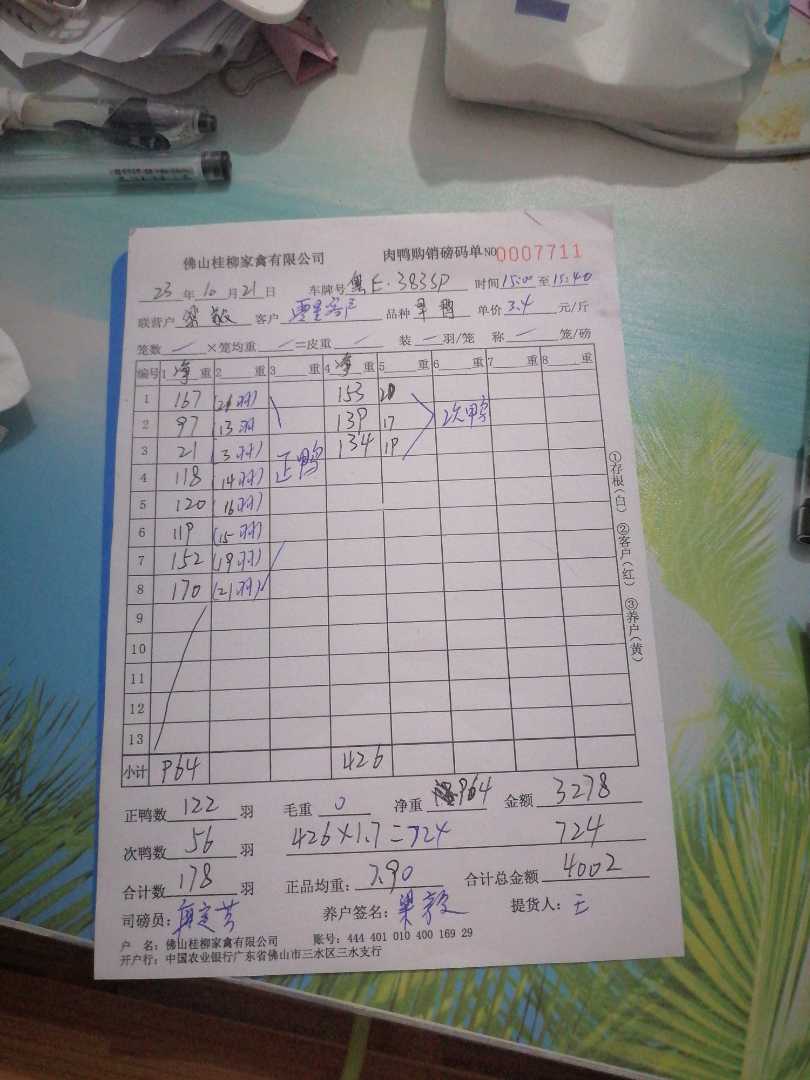 佛山桂柳家禽有限公司 肉鸭购销磅码单 NO 0007711
23 年 10 月 21 日 车牌号 粤E·3835P 时间 15:00 至 15:40
联营户 梁敏 客户 零星客户 品种 单价 3.4 元/斤
笼数 — ×笼均重 — =皮重 — 装 — 羽/笼 称 — 笼/磅
编号 1 净 重 2 重 3 重 4 净 重 5 重 6 重 7 重 8 重
1 167 (21羽) 153 20
2 97 (13羽 139 17 次鸭
3 21 (3羽) 正鸭 134 19
4 118 (14羽)
5 120 (16羽)
6 119 (15羽)
7 152 (19羽)
8 170 (21羽)
9
10
11
12
13
小计 964 426
正鸭数 122 羽 毛重 0 净重 964 金额 3278
次鸭数 56 羽 426×1.7=724 724
合计数 178 羽 正品均重: 7.90 合计总金额 4002
司磅员: 养户签名: 梁敏 提货人: 王
户 名: 佛山桂柳家禽有限公司 账号: 444 401 010 400 169 29
开户行: 中国农业银行广东省佛山市三水区三水支行
①存根(白) ②客户(红) ③养户(黄)